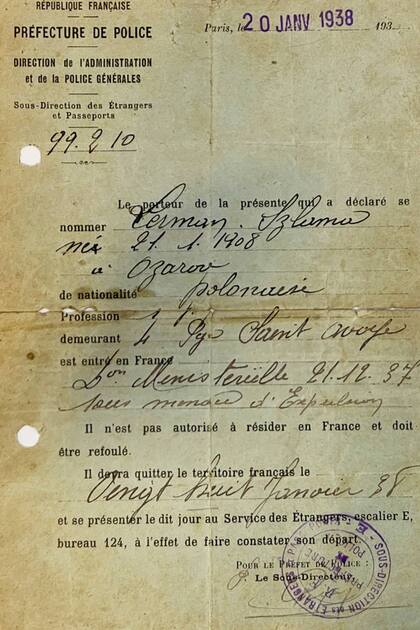 RÉPUBLIQUE FRANÇAISE
PRÉFECTURE DE POLICE
DIRECTION de l'ADMINISTRATION
et de la POLICE GÉNÉRALES
Sous-Direction des Étrangers
et Passeports
99.210
Paris, le 20 JANV 1938 193
Le porteur de la présente qui a déclaré se
nommer Lerman Szlama
né 21.1.1908
à Ozarow
de nationalité polonaise
Profession
demeurant 4 Pge Saint Avoye
est entré en France
Don Ministérielle 21.12.37
sous menace d'Expulsion
Il n'est pas autorisé à résider en France et doit
être refoulé.
Il devra quitter le territoire français le
Vingt huit Janvier 38
et se présenter le dit jour au Service des Étrangers, escalier E,
bureau 124, à l'effet de faire constater son départ.
POUR LE PRÉFET DE POLICE :
Le Sous-Directeur,
SOUS-DIRECTION des ÉTRANGERS